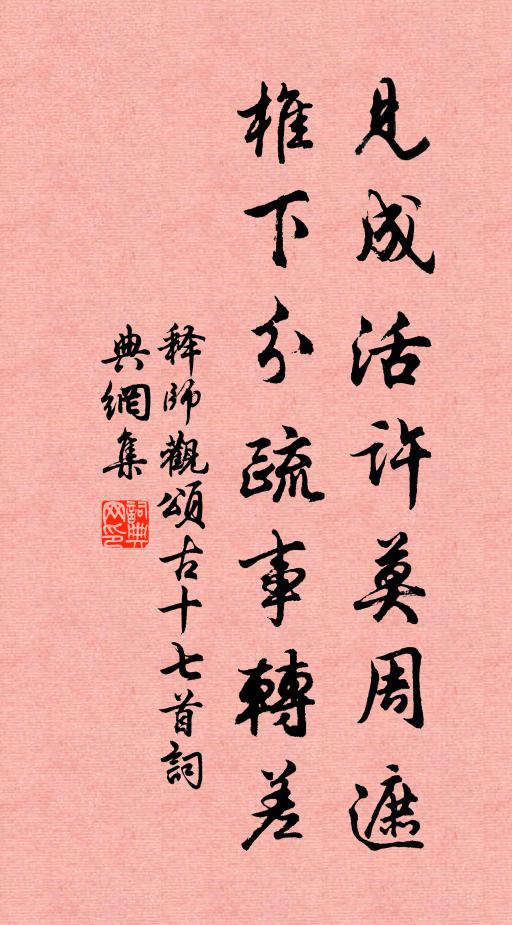 見成活許莫周遮
椎下分疏事轉差
释師觀頌古十七首詞
典網集
詞典网印